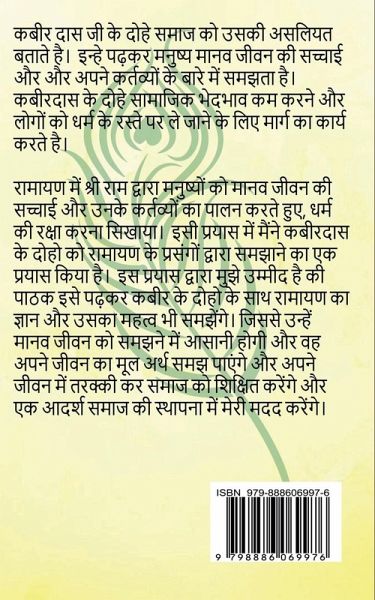 कबीर दास जी के दोहे समाज को उसकी असलियत
बताते है। इन्हे पढ़कर मनुष्य मानव जीवन की सच्चाई
और और अपने कर्तव्यों के बारे में समझता है।
कबीरदास के दोहे सामाजिक भेदभाव कम करने और
लोगों को धर्म के रस्ते पर ले जाने के लिए मार्ग का कार्य
करते है।
रामायण में श्री राम द्वारा मनुष्यों को मानव जीवन की
सच्चाई और उनके कर्तव्यों का पालन करते हुए, धर्म
की रक्षा करना सिखाया। इसी प्रयास में मैंने कबीरदास
के दोहो को रामायण के प्रसंगों द्वारा समझाने का एक
प्रयास किया है। इस प्रयास द्वारा मुझे उम्मीद है की
पाठक इसे पढ़कर कबीर के दोहों के साथ रामायण का
ज्ञान और उसका महत्व भी समझेंगे। जिससे उन्हें
मानव जीवन को समझने में आसानी होगी और वह
अपने जीवन का मूल अर्थ समझ पाएंगे और अपने
जीवन में तरक्की कर समाज को शिक्षित करेंगे और
एक आदर्श समाज की स्थापना में मेरी मदद करेंगे।
ISBN 979-888606997-6
9 798886 069976